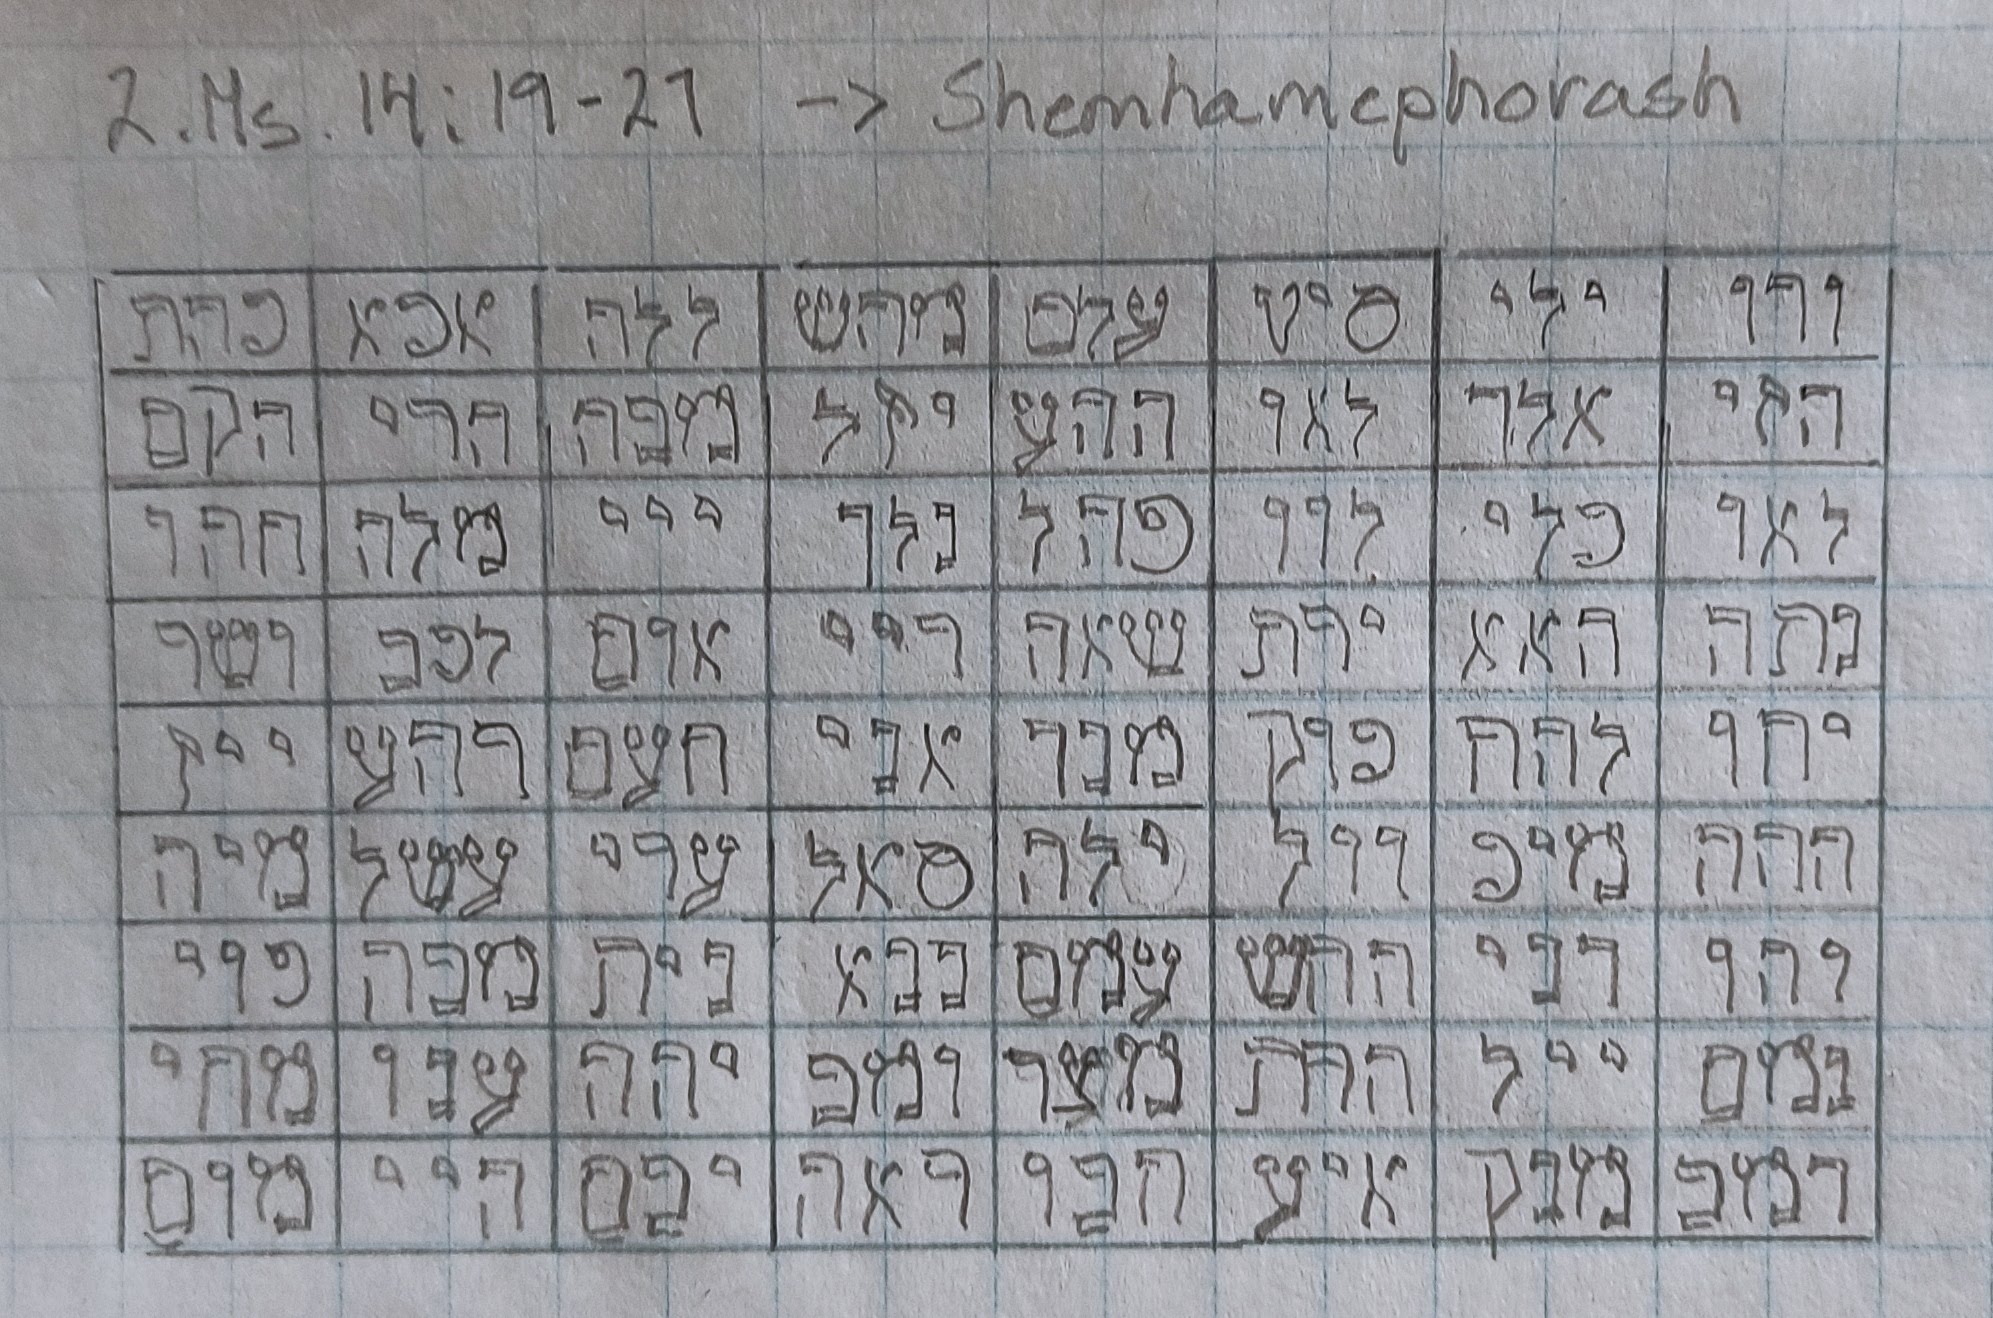 2.Ms. 14:19-21 -> Shemhamephorash
והו ילי סיט עלם מהש ללה אכא כהת
הזי אלד לאו ההע יזל מבה הרי הקם
לאו כלי לוו פהל נלך ייי מלה חהו
נתה האא ירת שאה ריי אום לכב ושר
יחו להח כוק מנד אני חעם רהע ייז
ההה מיכ וול ילה סאל ערי עשל מיה
והו דני החש עמם ננא נית מבה פוי
נמם ייל הרח מצר ומב יהה ענו מחי
דמב מנק איע חבו ראה יבם היי מום